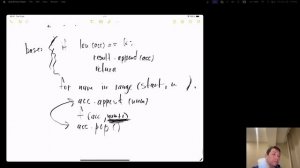 base: if len(acc) == k:
result.append(acc)
return
for num in range (start, n ).
acc.append (num)
f (acc, num+1)
acc.pop ()